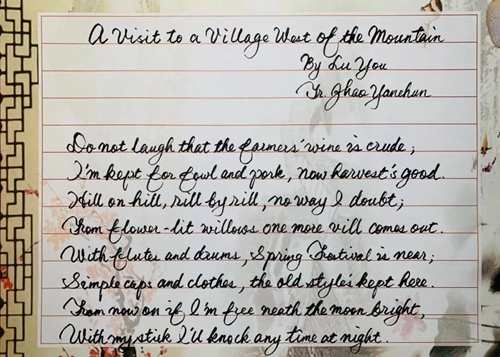 A Visit to a Village West of the Mountain
By Lu You
Tr. Zhao Yanchun
Do not laugh that the farmers' wine is crude;
I'm kept for fowl and pork, now harvest's good.
Hill on hill, rill by rill, no way I doubt;
From flower-lit willows one more vill comes out.
With flutes and drums, Spring Festival is near;
Simple caps and clothes, the old style's kept here.
From now on if I'm free neath the moon bright,
With my stick I'll knock any time at night.